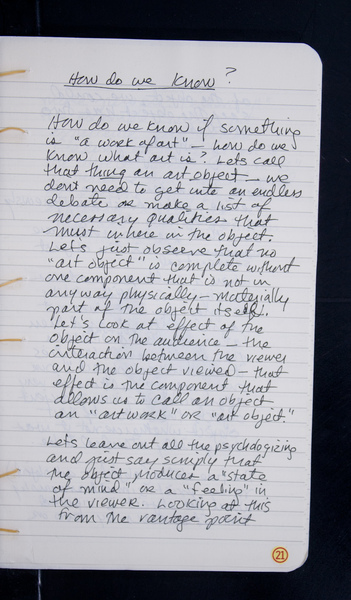 How do we know?
How do we know if something
is "a work of art" – how do we
know what art is? Lets call
that thing an art object – we
don't need to get into an endless
debate or make a list of
necessary qualities that
must inhere in the object.
Let's just observe that no
"art object" is complete without
one component that is not in
anyway physically – materially
part of the object itself.
Let's look at effect of the
object on the audience – the
interaction between the viewer
and the object viewed – that
effect is the component that
allows us to call an object
an "art work" or "art object."
Lets leave out all the psychologizing
and just say simply that
the object produces a "state
of mind" or a "feeling" in
the viewer. Looking at this
from the vantage point
21